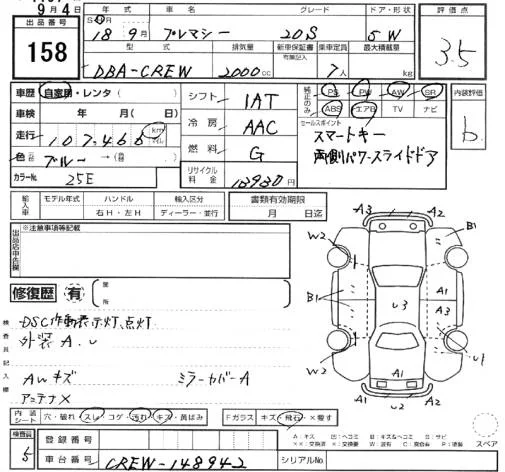 9月4日
出品番号
158
年式 車名 グレード ドア・形状
18 9月 プレマシー 20S 5W
型式 排気量 新車保証書 乗車定員 最大積載量
有無記入
DBA-CREW 2000cc 7人 kg
評価点
3.5
車歴 自家用・レンタ( )
車検 年 月( 日)
走行 107,468 km
色 ブルー →( )
カラーNo. 25E
シフト 1AT
冷房 AAC
燃料 G
リサイクル料金 13930円
純正のみ PS PW AW SR
ABS エアB TV ナビ
セールスポイント
スマートキー
両側パワースライドドア
内装評価
b
輸入車 モデル年式 ハンドル 輸入区分
右H・左H ディーラー・並行
書類有効期限
月 日迄
出品店申告欄
※注意事項等記載
修復歴 有 箇所
検査員記入欄
DSC作動表示灯、点灯
外装 A. U
AWキズ ミラーカバーA
アンテナX
A3 A2
W2 B1
B1 U3 A1
A3
W2 U1
A1
A2 U2 A2
スペア
内装シート 穴・破れ・スレ・コゲ・汚れ・キズ・黄ばみ Fガラス キズ・飛石・×要す
検査員 5
登録番号
車台番号 CREW-148942 シリアルNo.